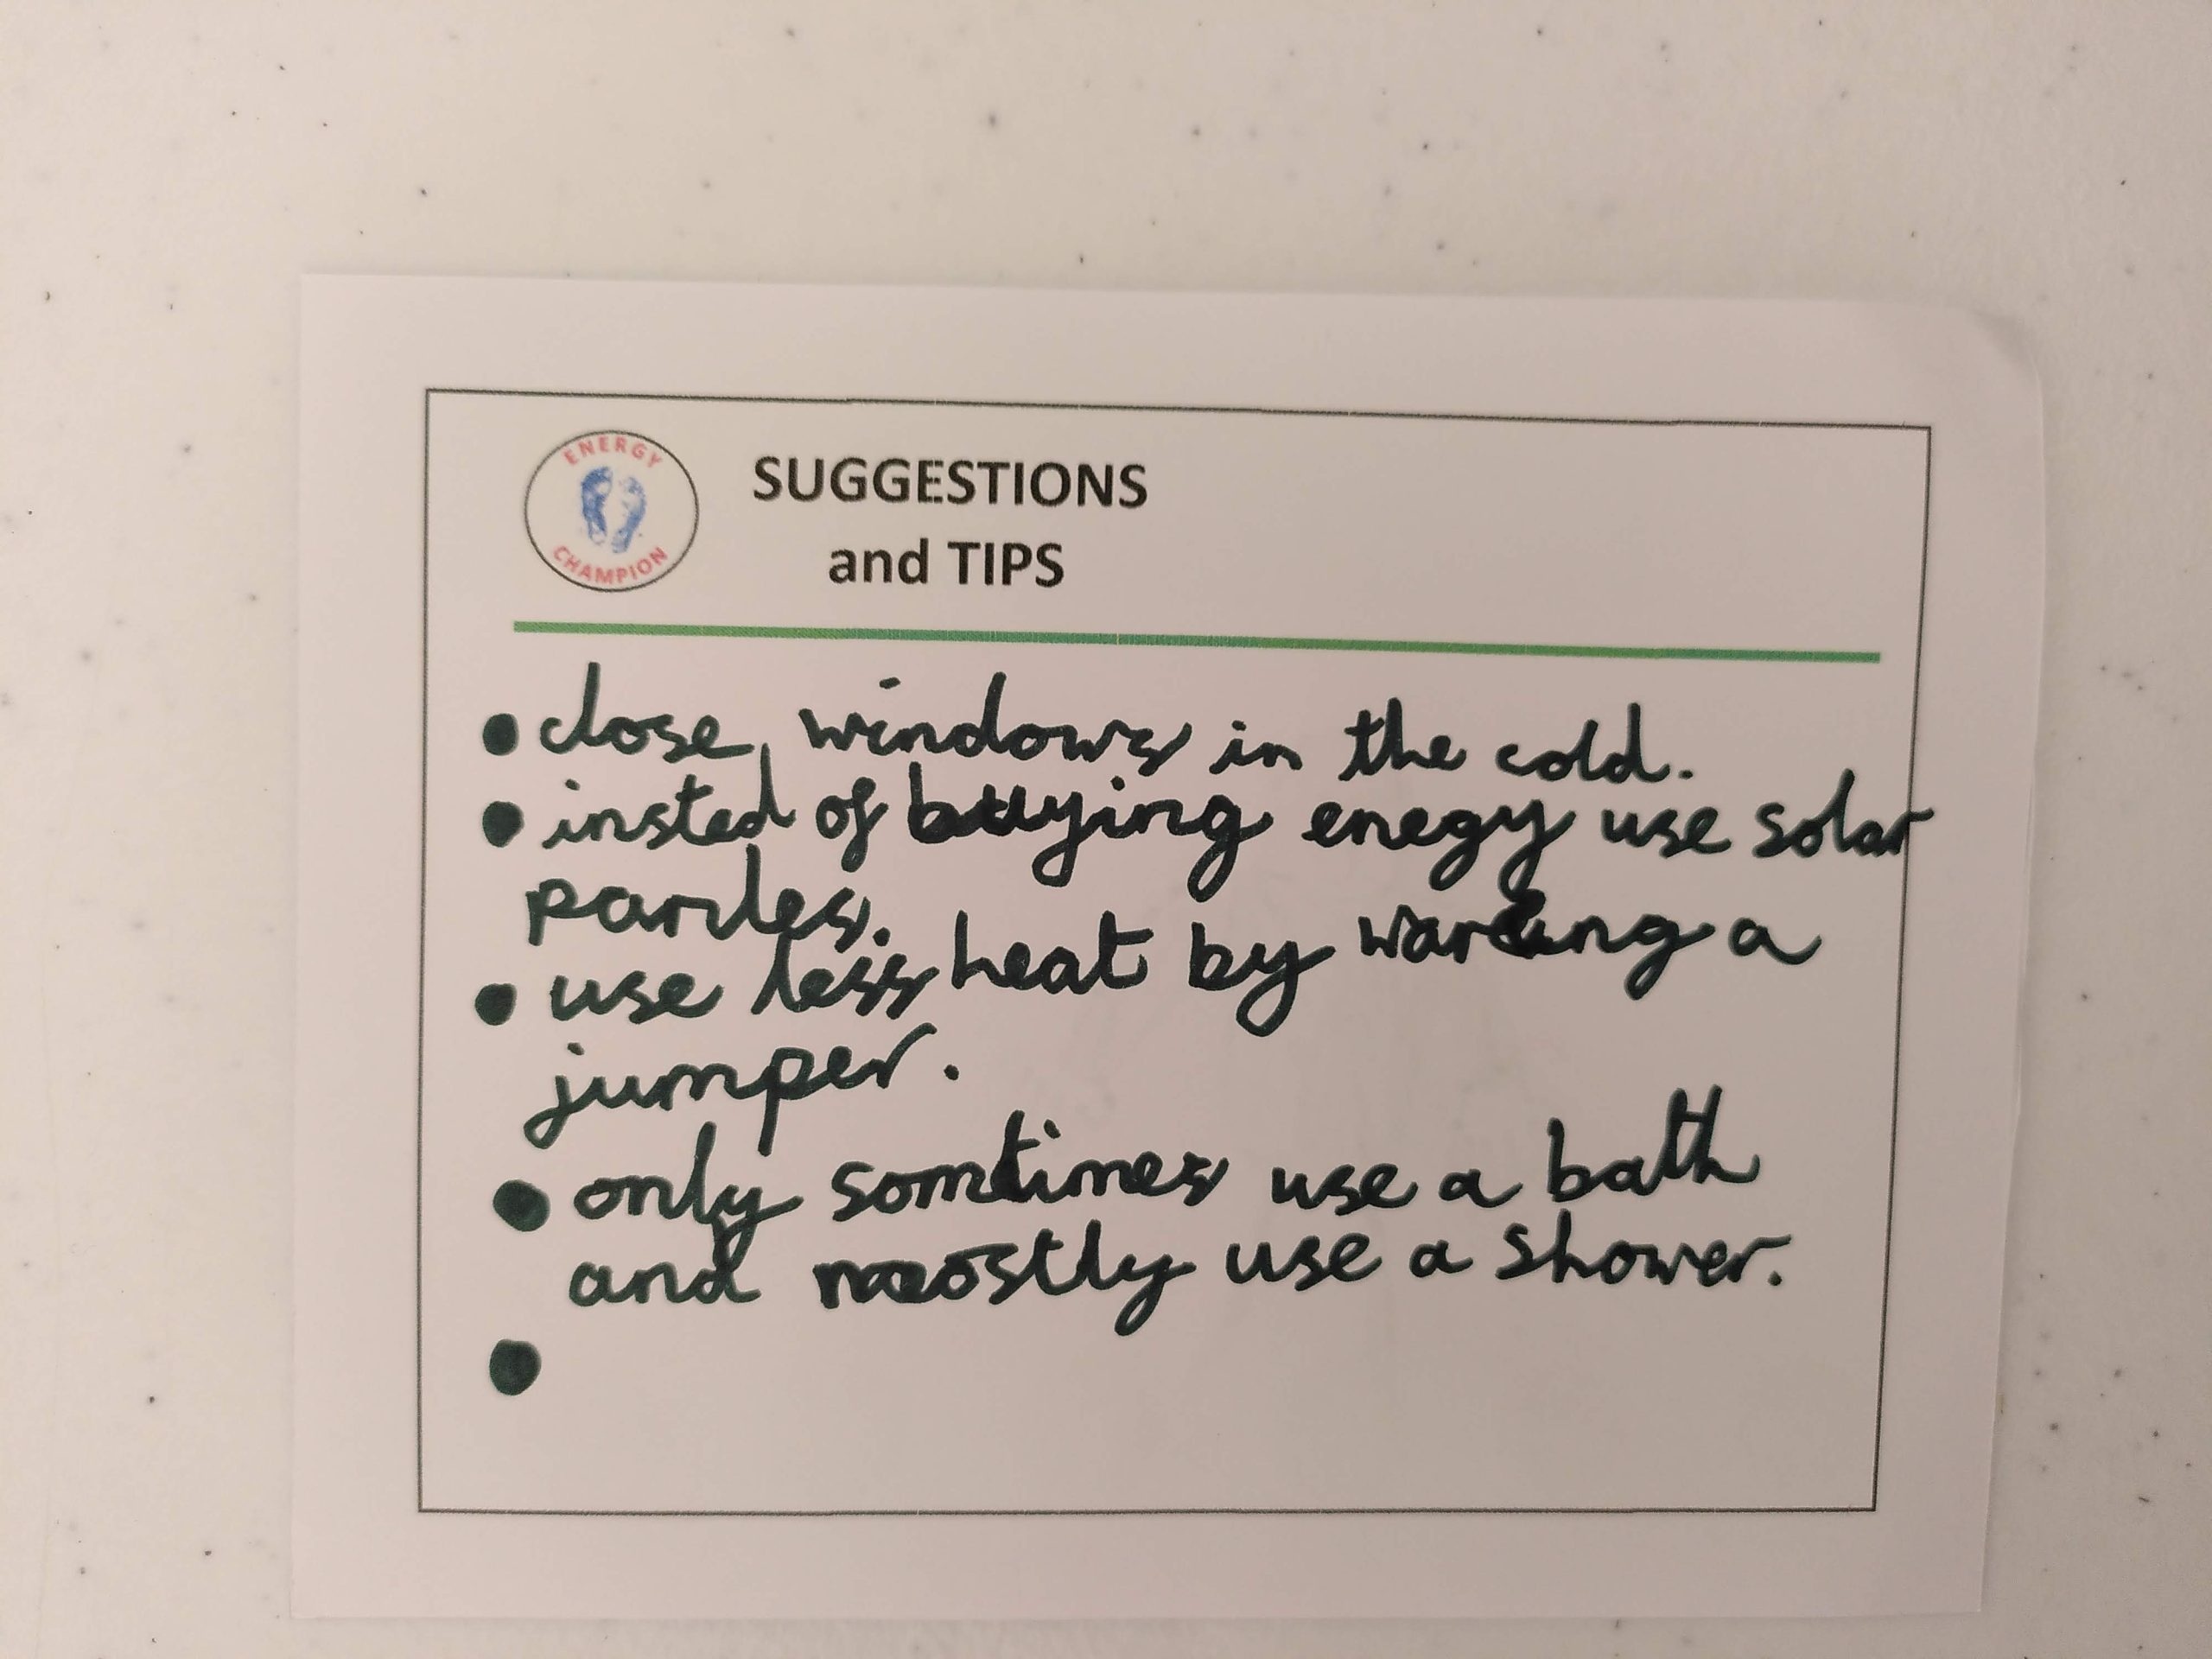 ENERGY
CHAMPION
SUGGESTIONS
and TIPS
• close windows in the cold.
• insted of buying enegy use solar
panles.
• use less heat by waring a
jumper.
• only somtimes use a bath
and mostly use a shower.
•